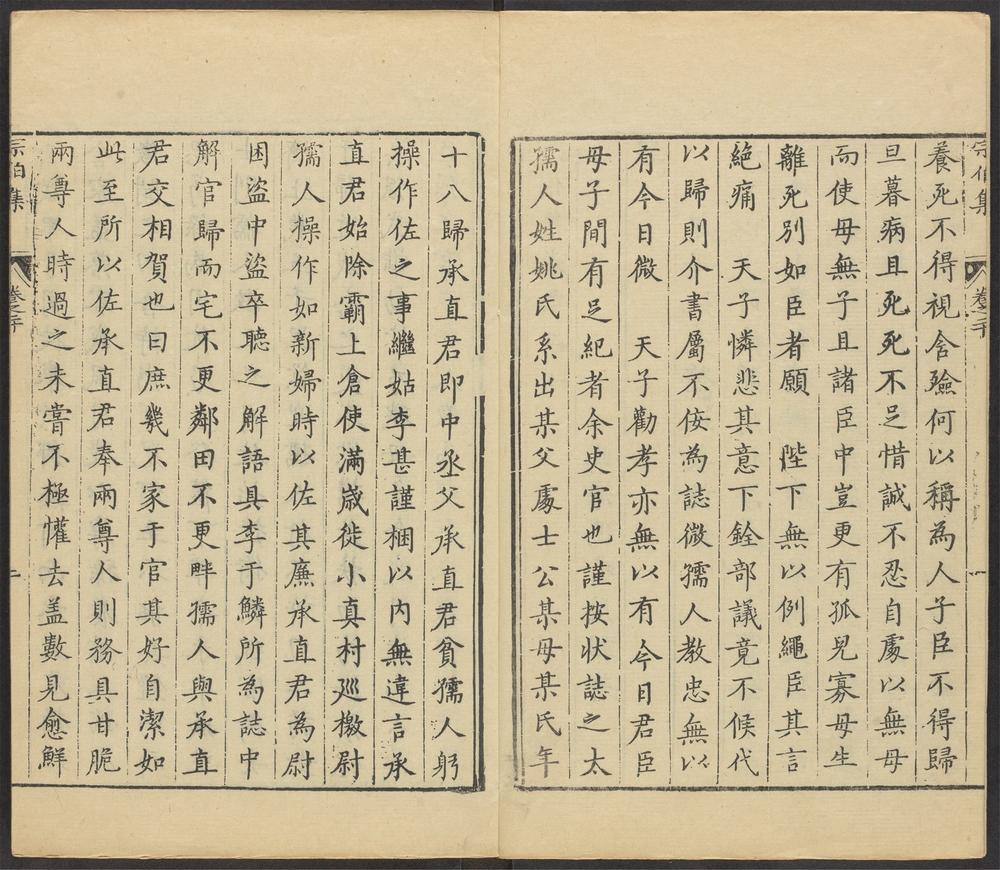 宗伯集
卷之二十
一
養死不得視含殮何以稱為人子臣不得歸
旦暮病且死死不足惜誠不忍自處以無母
而使母無子且諸臣中豈更有孤兒寡母生
離死別如臣者願 陛下無以例繩臣其言
絶痛 天子憐悲其意下銓部議竟不候代
以歸則介書屬不佞為誌微孺人教忠無以
有今日微 天子勸孝亦無以有今日君臣
母子間有足紀者余史官也謹按狀誌之太
孺人姓姚氏系出某父處士公某母某氏年
十八歸承直君即中丞父承直君貧孺人躬
操作佐之事繼姑李甚謹梱以内無違言承
直君始除霸上倉使滿嵗徙小真村廵檄尉
孺人操作如新婦時以佐其廉承直君為尉
困盜中盜卒聽之解語具李于鱗所為誌中
解官歸而宅不更鄰田不更畔孺人與承直
君交相賀也曰庶幾不家于官其好自潔如
此至所以佐承直君奉兩尊人則務具甘脆
兩尊人時過之未嘗不極懽去盖數見愈鮮
宗伯集